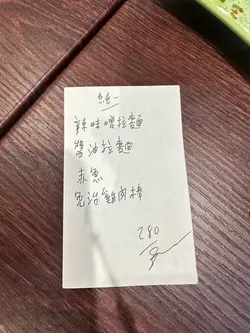 統一
辣味噌拉麵
醬油拉麵
赤魚
免治雞肉棒
280